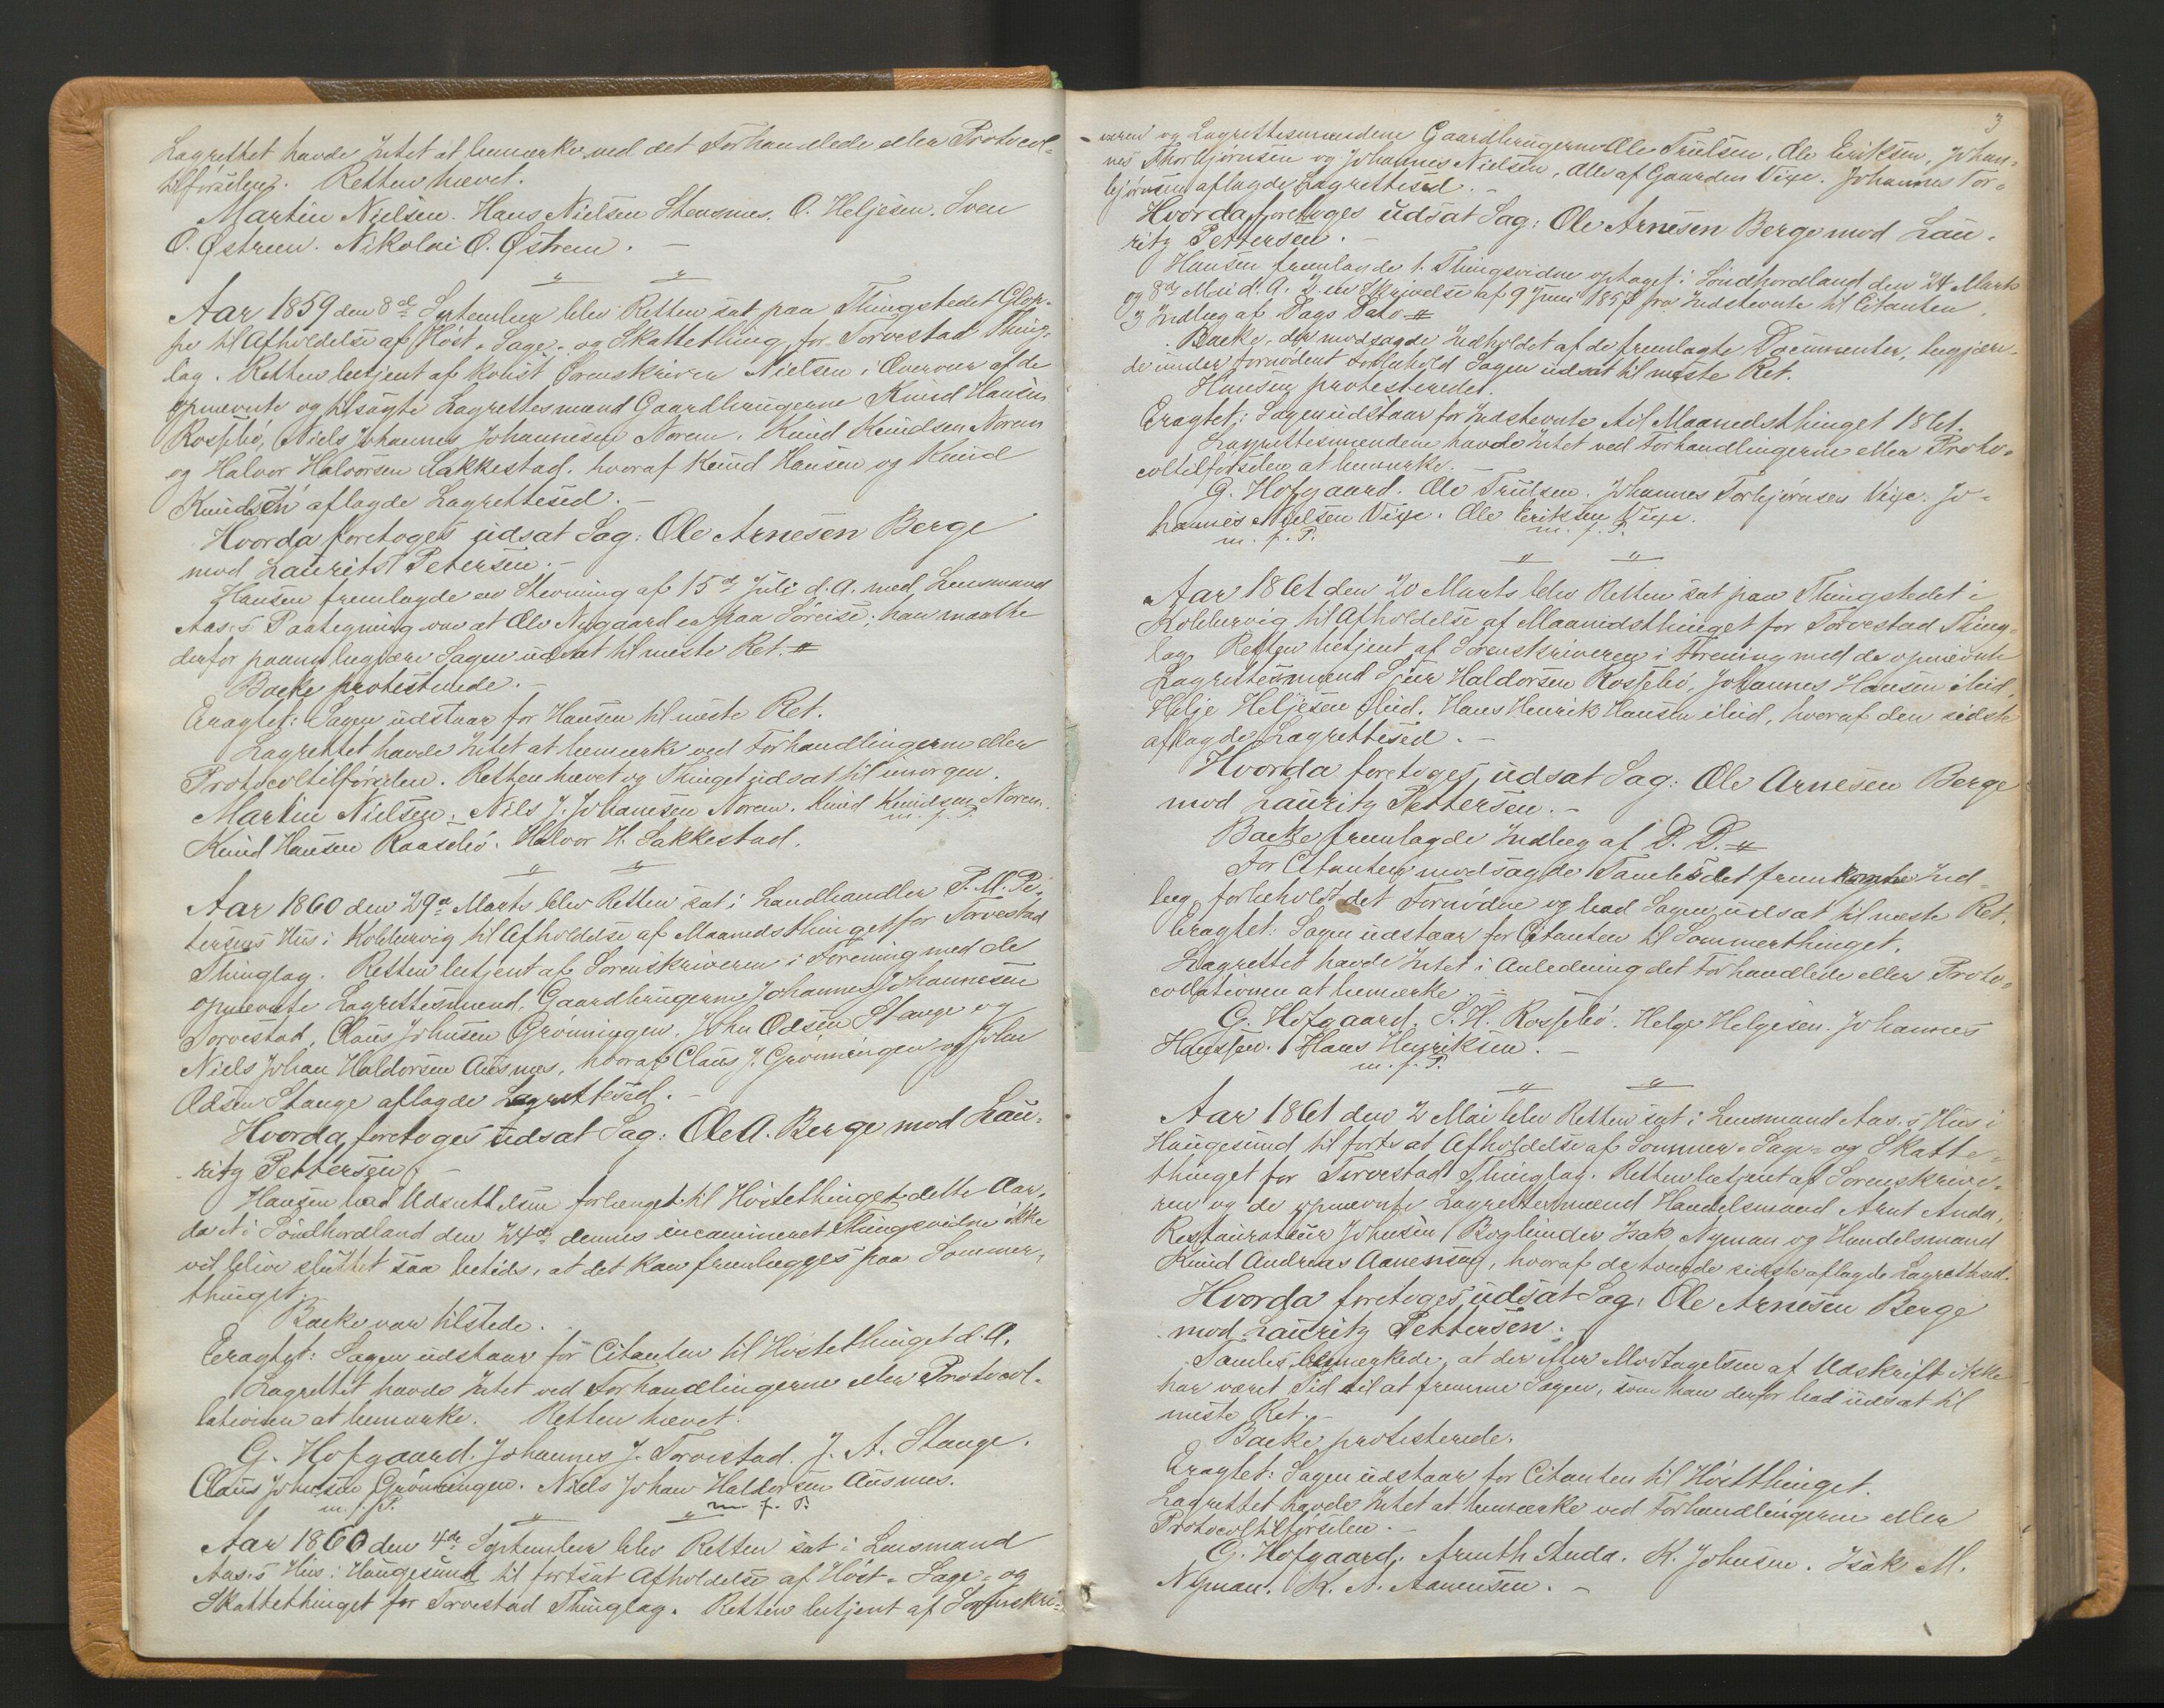 Lagrettet havde Intet at bemærke ved det Forhandlede eller Protocol-
tilførselen. Retten hævet.
Martin Nielsen. Hans Nielsen Stensnes. O. Heljesen. Sven
O. Østrem. Nikolai O. Østrem. -
Aar 1859 den 8de September blev Retten sat paa Thingstedet Glop-
pe til Afholdelse af Høst-Sage- og Skattething for Torvestad Thing-
lag. Retten betjent af konst. Sorenskriver Nielsen i Overvær af de
opnævnte og tilsagte Lagrettesmænd Gaardbrugerne Knud Hansen
Rossebø, Niels Johannes Johannesen Norem, Knud Knudsen Norem
og Halvor Halvorsen Sakkestad, hvoraf Knud Hansen og Knud
Knudsen aflagde Lagretteséd. -
Hvorda foretoges udsat Sag: Ole Arnesen Berge
mod Laurits Petersen. -
Hansen fremlagde en Stevning af 15de Juli d. A. med Lensmand
Aas.s Paategning om at Ole Nygaard er paa Søreise; han maatte
derfor paany begjære Sagen udsat til næste Ret. #
Backe protesterede. -
Eragtet: Sagen udstaar for Hansen til næste Ret.
Lagrettet havde Intet at bemærke ved Forhandlingerne eller
Protocoltilførselen. Retten hævet og Thinget udsat til imorgen.
Martin Nielsen. Nils J. Johannesen Norem. Knud Knudsen Norem.
m. f. P.
Knud Hansen Raasebø. Halvor H. Sakkestad.
Aar 1860 den 29de Marts blev Retten sat i Landhandler P. M. Pe-
tersens Hus i Kobbervig til Afholdelse af Maanedsthinget for Torvestad
Thinglag. Retten betjent af Sorenskriveren i Forening med de
opnævnte Lagrettesmænd, Gaardbrugerne Johannes Johannesen
Torvestad, Claus Johnsen Grønningen, John Odsen Stange og
Niels Johan Haldorsen Ausnes, hvoraf Claus J. Grønningen og John
Odsen Stange aflagde Lagretteséd. -
Hvorda foretoges udsat Sag: Ole A. Berge mod Lau-
ritz Pettersen. -
Hansen bad Udsættelsen forlænget til Høstethinget dette Aar,
da et i Søndhordland den 24de dennes incamineret Thingsvidne ikke
vil blive sluttet saa betids, at det kan fremlægges paa Sommer-
thinget.
Backe var tilstede.
Eragtet: Sagen udstaar for Citanten til Høstethinget d. A.
Lagrettet havde Intet ved Forhandlingerne eller Protocol-
lationen at bemærke. Retten hævet.
G. Hofgaard. Johannes J. Torvestad. J. A. Stange.
Claus Johnsen Grønningen. Niels Johan Haldorsen Ausnes.
m. f. P. m. f. P.
Aar 1860 den 4de September blev Retten sat i Lensmand
Aas.s Hus i Haugesund til fortsat Afholdelse af Høst- Sage- og
Skattethinget for Torvestad Thinglag. Retten betjent af Sorenskri-
3
veren og Lagrettesmændene Gaardbrugerne Ole Trulsen, Ole Eriksen, Johan-
nes Thorbjørnsen og Johannes Nielsen, Alle af Gaarden Vixe. Johannes Tor-
bjørnsen aflagde Lagretteséd. -
Hvorda foretoges udsat Sag: Ole Arnesen Berge mod Lau-
ritz Pettersen. -
Hansen fremlagde 1. Thingsvidne optaget i Søndhordland den 24 Marts
og 8de Mai d. A. 2. en Skrivelse af 9 Juni 1857 fra Indstevnte til Citanten.
3 Indlæg af Dags Dato #
Backe, der modsagde Indholdet af de fremlagte Documenter, begjære-
de under fornødent Forbehold Sagen udsat til næste Ret.
Hansen protesterede.
Eragtet: Sagen udstaar for Indstevnte til Maanedsthinget 1861.
Lagrettesmændene havde Intet ved Forhandlingerne eller Proto-
coltilførselen at bemærke. -
G. Hofgaard. Ole Trulsen. Johannes Torbjørnsen Vixe. Jo-
hannes Nielsen Vixe. Ole Eriksen Vixe.
m. f. P. m. f. P.
Aar 1861 den 20 Marts blev Retten sat paa Thingstedet i
Kobbervig til Afholdelse af Maanedsthinget for Torvestad Thing-
lag. Retten betjent af Sorenskriveren i Forening med de opnævnte
Lagrettesmænd Sjur Haldorsen Rossebø, Johannes Hansen ibid,
Helje Heljesen ibid, Hans Henrik Hansen ibid, hvoraf den sidste
aflagde Lagretteséd. -
Hvorda foretoges udsat Sag: Ole Arnesen Berge
mod Lauritz Pettersen. -
Backe fremlagde Indlæg af D. D. #
For Citanten modsagde Tambs det fremkomne Ind-
læg, forbeholdt det Fornødne og bad Sagen udsat til næste Ret.
Eragtet: Sagen udstaar for Citanten til Sommerthinget.
Lagrettet havde Intet i Anledning det Forhandlede eller Proto-
collationen at bemærke. -
G. Hofgaard. S. H. Rossebø. Helge Helgesen. Johannes
Hanssen. Hans Henriksen. -
m. f. P.
Aar 1861 den 2 Mai blev Retten sat i Lensmand Aas.s Hus i
Haugesund til fortsat Afholdelse af Sommer- Sage- og Skatte-
thinget for Torvestad Thinglag. Retten betjent af Sorenskrive-
ren og de opnævnte Lagrettesmænd Handelsmand Arnt Anda,
Restaurateur Johnsen, Bogbinder Isak Nyman og Handelsmand
Knud Andreas Aanensen, hvoraf de tvende sidste aflagde Lagretteséd.
Hvorda foretoges udsat Sag: Ole Arnesen Berge
mod Lauritz Pettersen. -
Tambs bemærkede, at der efter Modtagelsen af Udskrift ikke
har været Tid til at fremme Sagen, som han derfor bad udsat til
næste Ret. -
Backe protesterede.
Eragtet: Sagen udstaar for Citanten til Høstthinget.
Lagrettet havde Intet at bemærke ved Forhandlingerne eller
Protocoltilførselen. -
G. Hofgaard. Arnth Anda. K. Johnsen. Isak M.
Nyman. K. A. Aanensen. -